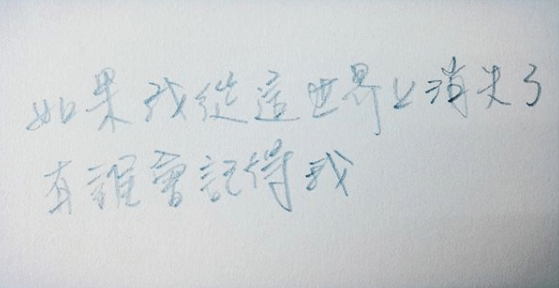 如果我從這世界上消失了
有誰會記得我